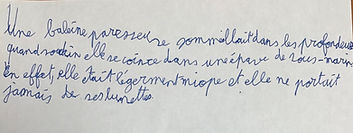 Une baleine paresseuse sommeillait dans les profondeurs
quand soudain elle se coince dans une épave de sous-marin
En effet, elle était légerment miope et elle ne portait
jamais de ses lunettes.